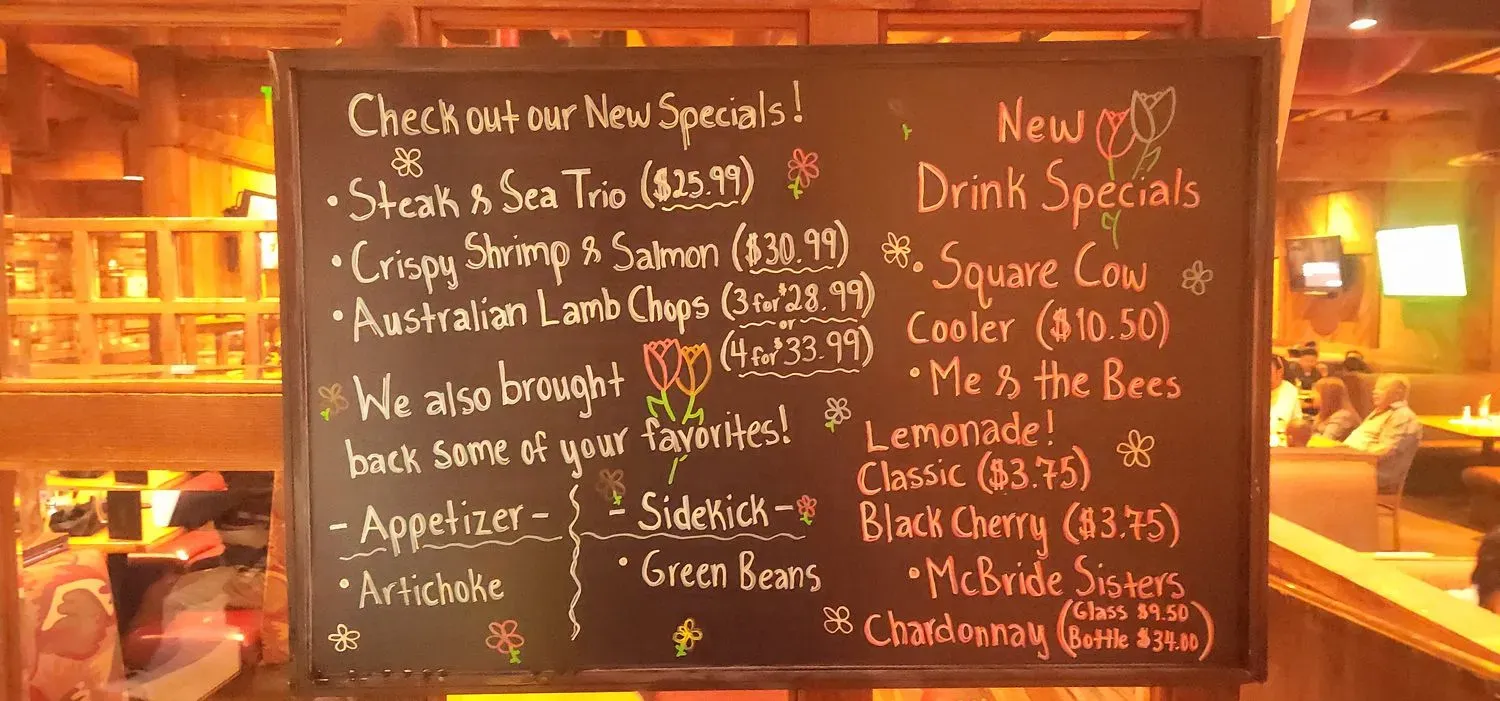 Check out our New Specials!
• Steak & Sea Trio ($25.99)
• Crispy Shrimp & Salmon ($30.99)
• Australian Lamb Chops (3 for $28.99)
or
(4 for $33.99)
We also brought
back some of your favorites!
- Appetizer -
• Artichoke
- Sidekick -
• Green Beans
New
Drink Specials
• Square Cow
Cooler ($10.50)
• Me & the Bees
Lemonade!
Classic ($3.75)
Black Cherry ($3.75)
• McBride Sisters
Chardonnay (Glass $9.50
Bottle $34.00)